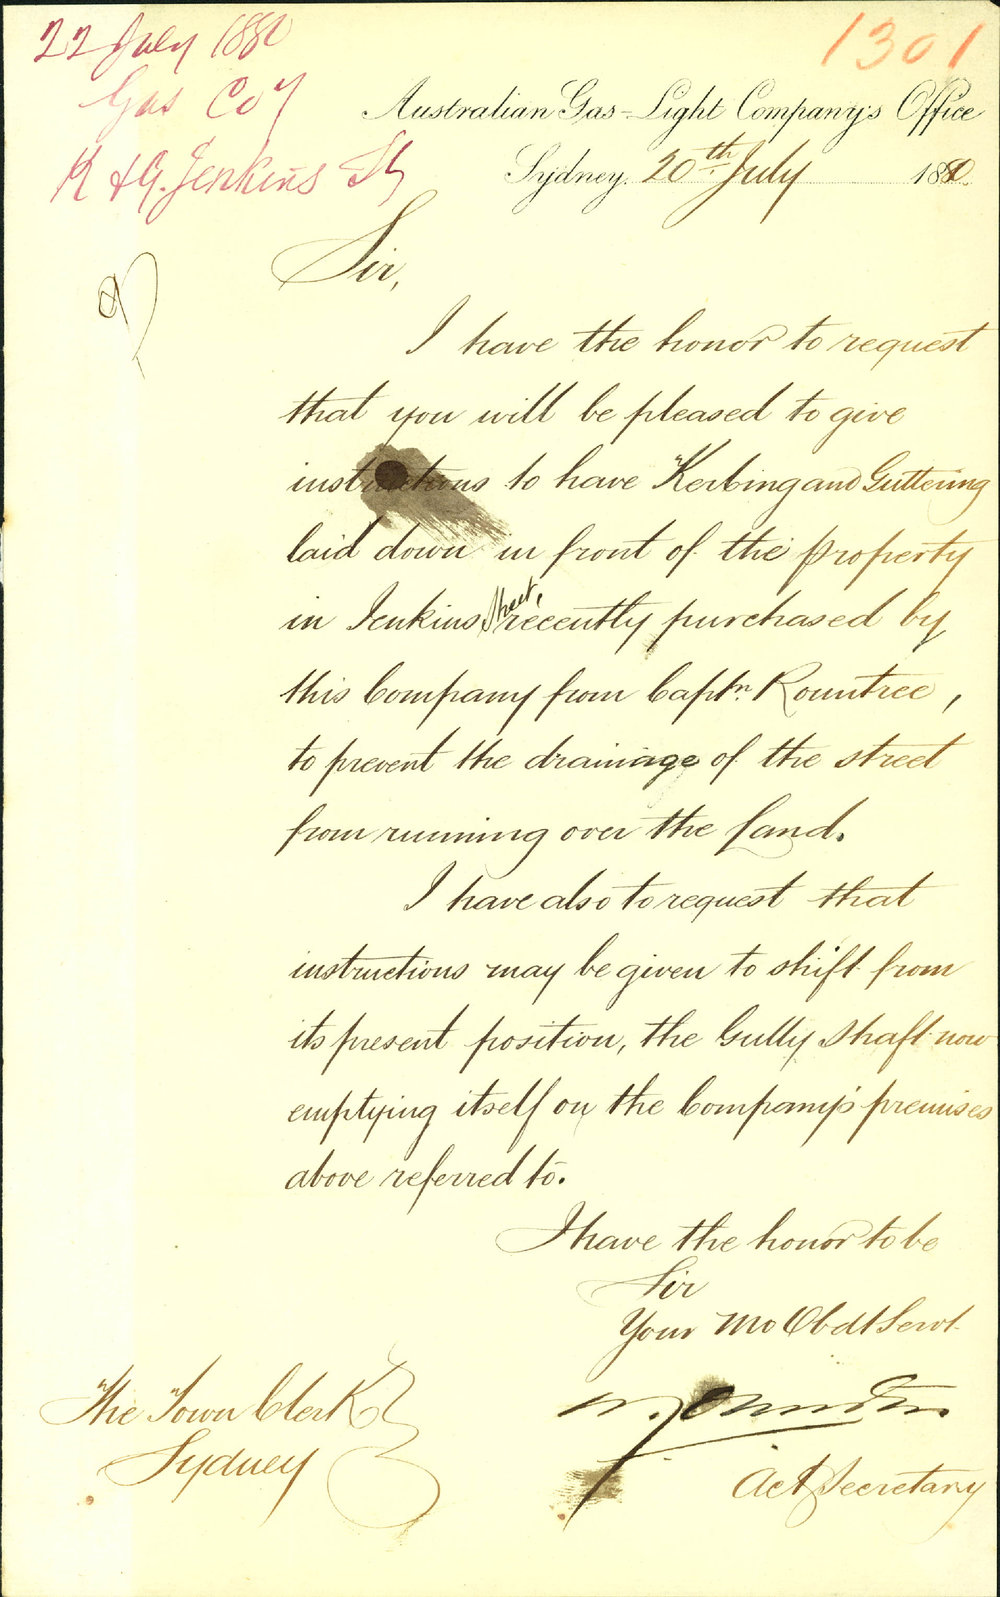 22 July 1880
1301
Gas Coy
K & G. Jenkins St
Australian Gas-Light Company's Office
Sydney. 20th July 1880.
Sir,
I have the honor to request
that you will be pleased to give
instructions to have Kerbing and Guttering
laid down in front of the property
in Jenkins Street, recently purchased by
this Company from Captn. Rountree,
to prevent the drainage of the street
from running over the land.
I have also to request that
instructions may be given to shift from
its present position, the Gully Shaft now
emptying itself on the Company's premises
above referred to.
I have the honor to be
Sir
Your Mo Obdt Servt
The Town Clerk
Sydney
Act Secretary